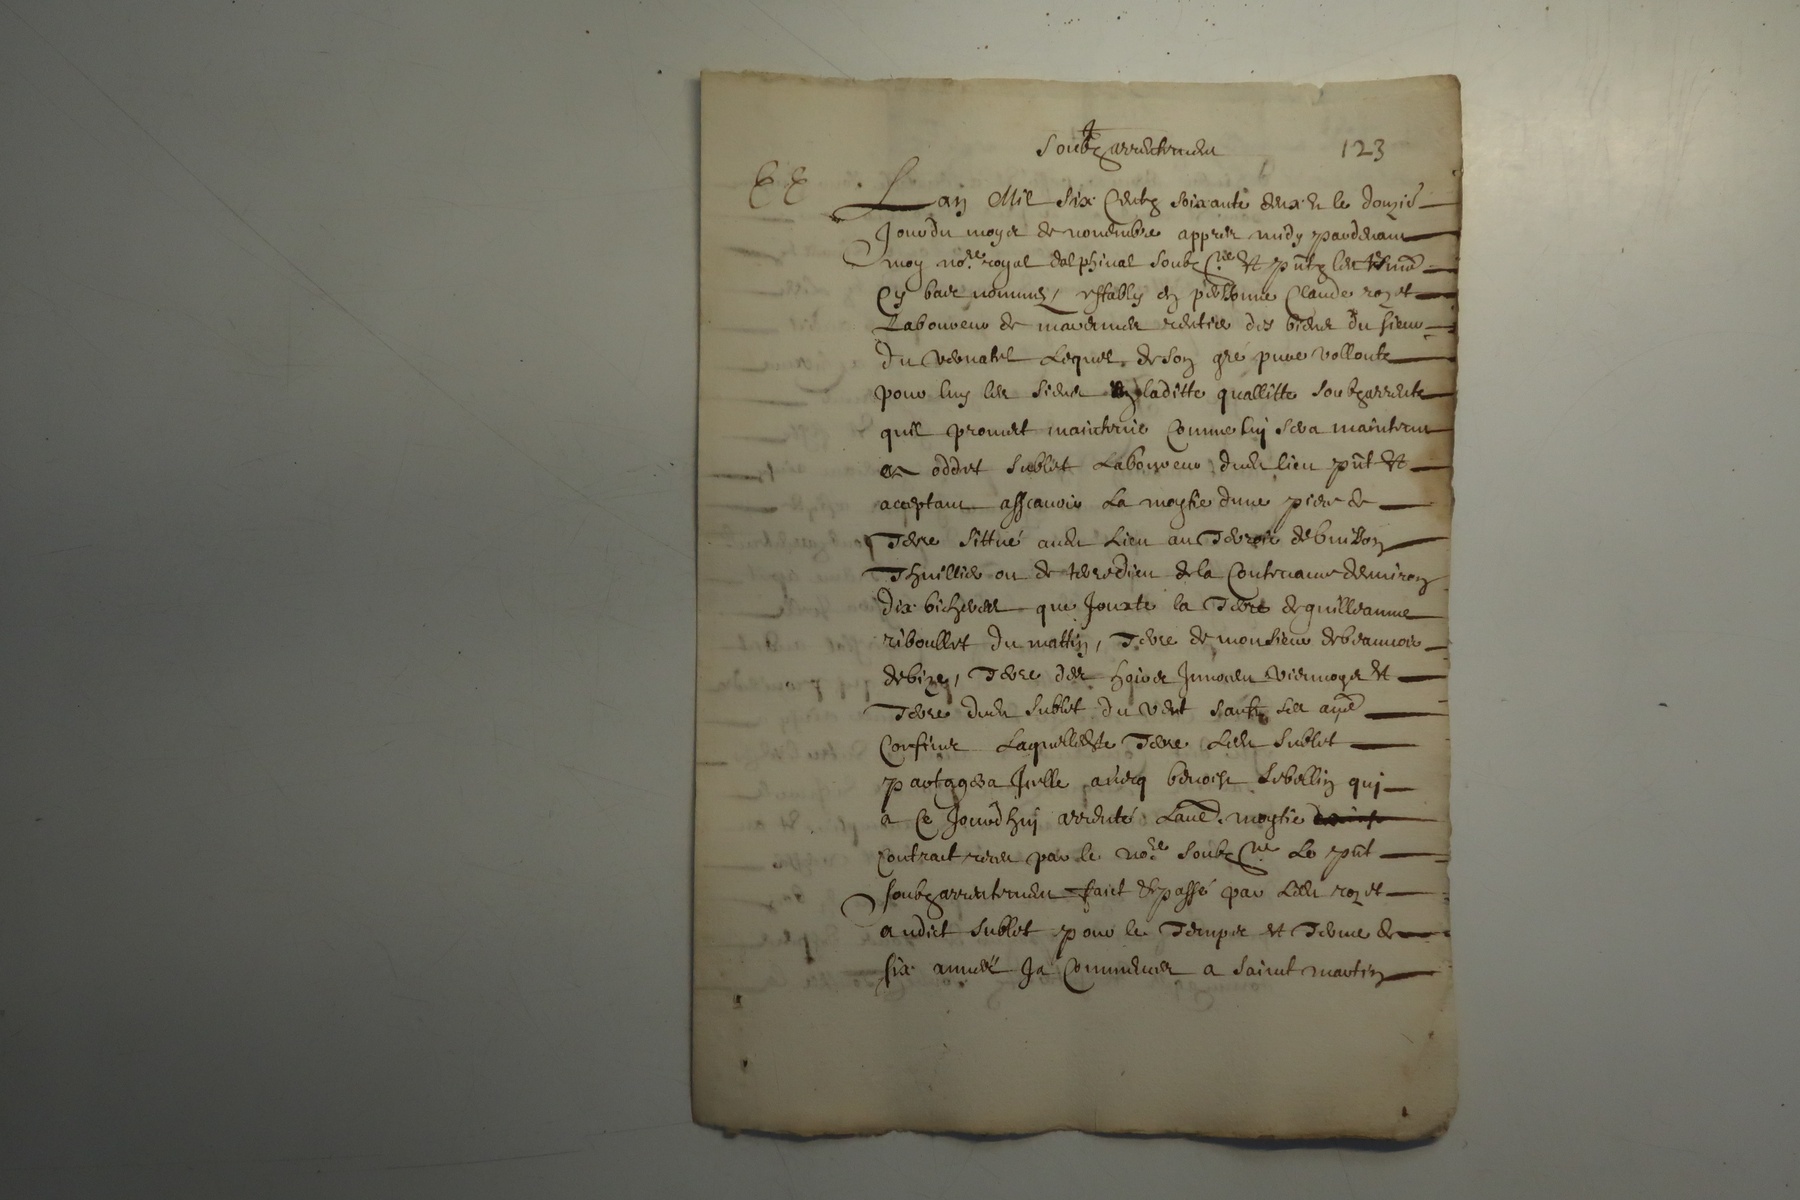 Soubzarrentement 123
Lan Mil Six Centz Soixante deux et le douzie
Jour du moys de novembre appres midy pardevant
moy nore royal dalphinal Soubzne et pntz les tesmo
Cy bas nommez, estably en personne Claude rozet
Laboureur de rentier des biens du sieur
du vernatel Lequel de son gré pure vollonte
pour luy les siens en laditte quallitte soubzarrente
quil promet maintenir Comme luy sera maintenu
a oddet Sublet Laboureur dudt lieu pnt et
acceptant asscavoir La moytie dune piece de
Terre sittué audt Lieu au Terroir de buisson
Thuillier ou de terredieu de la Contenance denviron
dix bicherees que Jouxte la Terre de guilleaume
riboullet du mattin, Terre de monsieur de beauvoir
de bize, Terre des hoirs vier moyet et
Terre dudt Sublet du vent saufz ses aues
Confins Laquelledte Terre Ledt Sublet
partagera Jcelle avecq benoist Sebellin qui
a Ce Jourdhuy arrenté Laued. moytie
Contract receu par le nore soubzne Le pnt
soubzarrentement faict et passé par Ledt rozet
audict Sublet pour le Temps et Terme de
six annees Ja Commences a Sainct martin